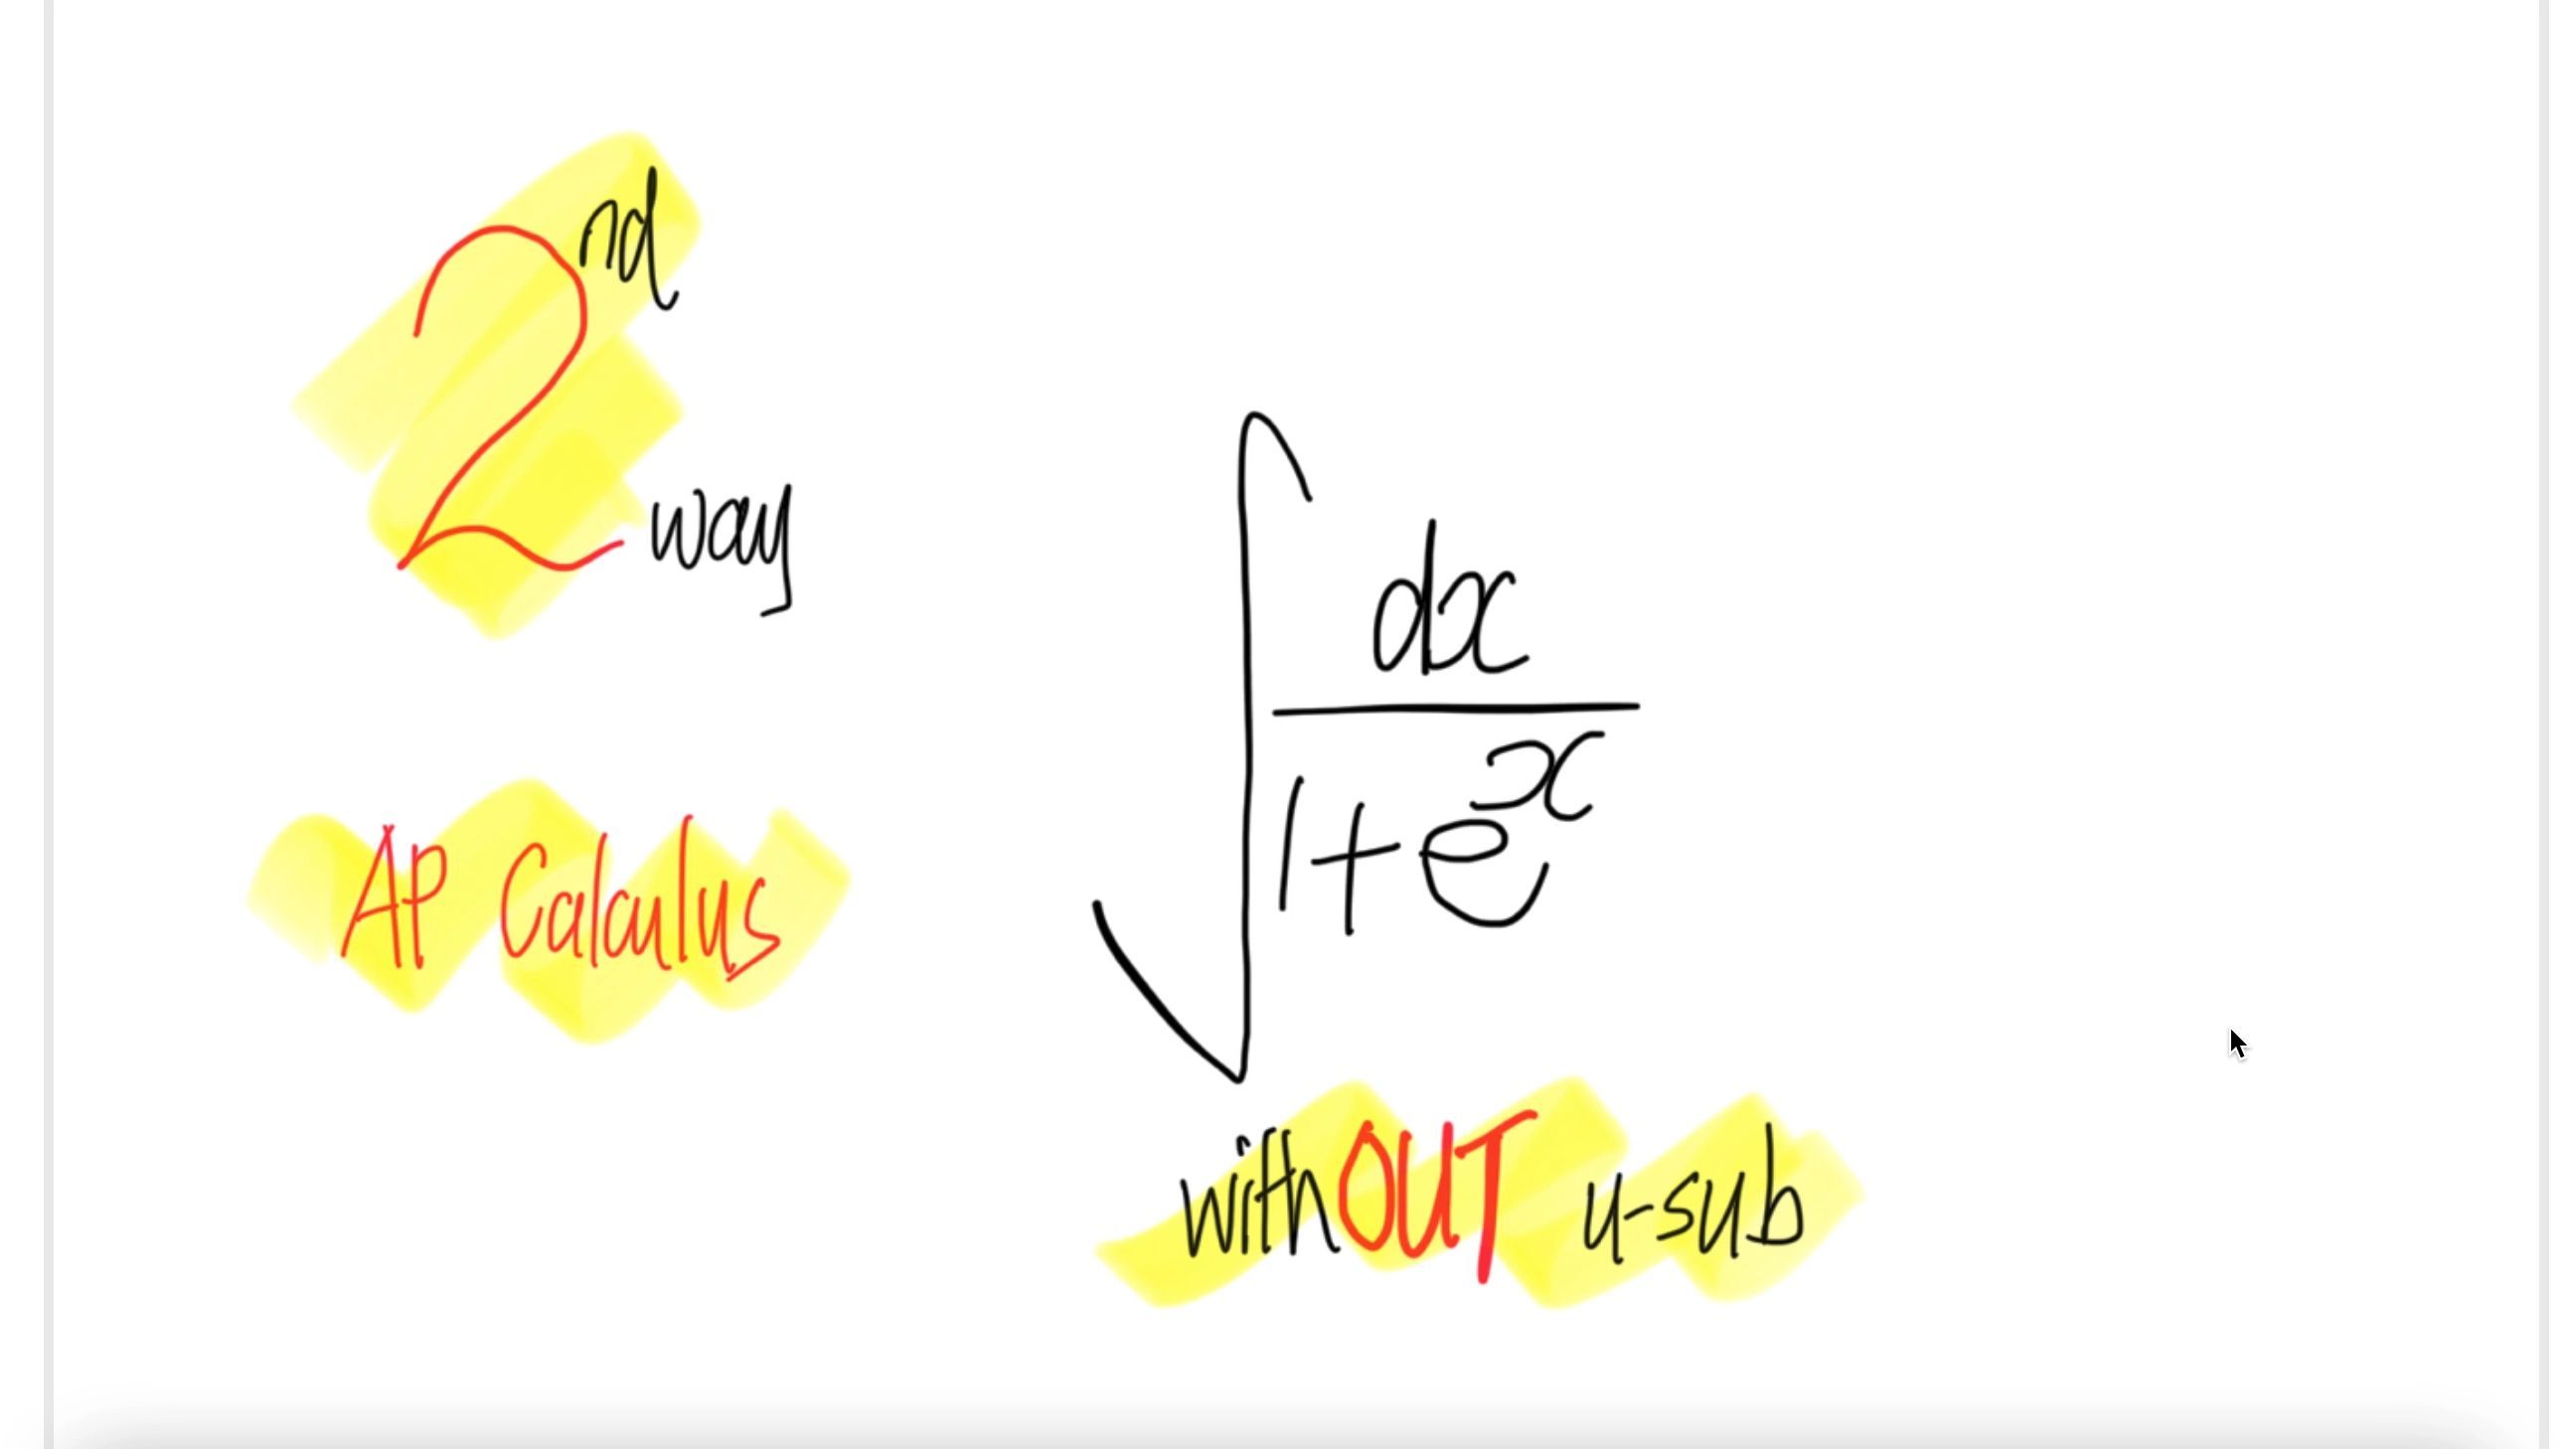 2nd
way
AP Calculus
∫ dx
1+e^x
withOUT u-sub